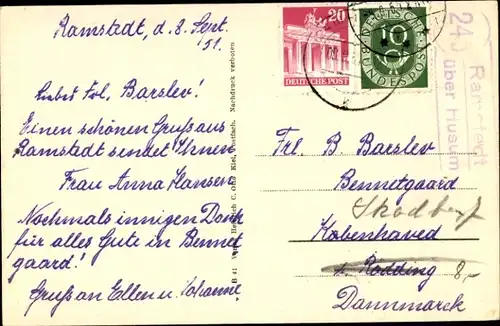 Ramstedt, d. 8. Sept.
51.
Liebes Frl. Barslev!
Einen schönen Gruß aus
Ramstedt sendet Ihnen
Frau Anna Hansen
Nochmals innigen Dank
für alles Gute in Bennet
gaard!
Gruß an Ellen u. Johanne
Nachdruck verboten
Kiel, Postfach.
20
DEUTSCHE POST
10
DEUTSCHE
BUNDESPOST
Ramstedt
über Husum
Frl. B. Barslev
Bennetgaard
Skodborg
Københaved
Rödding 8,-
Dannmarck